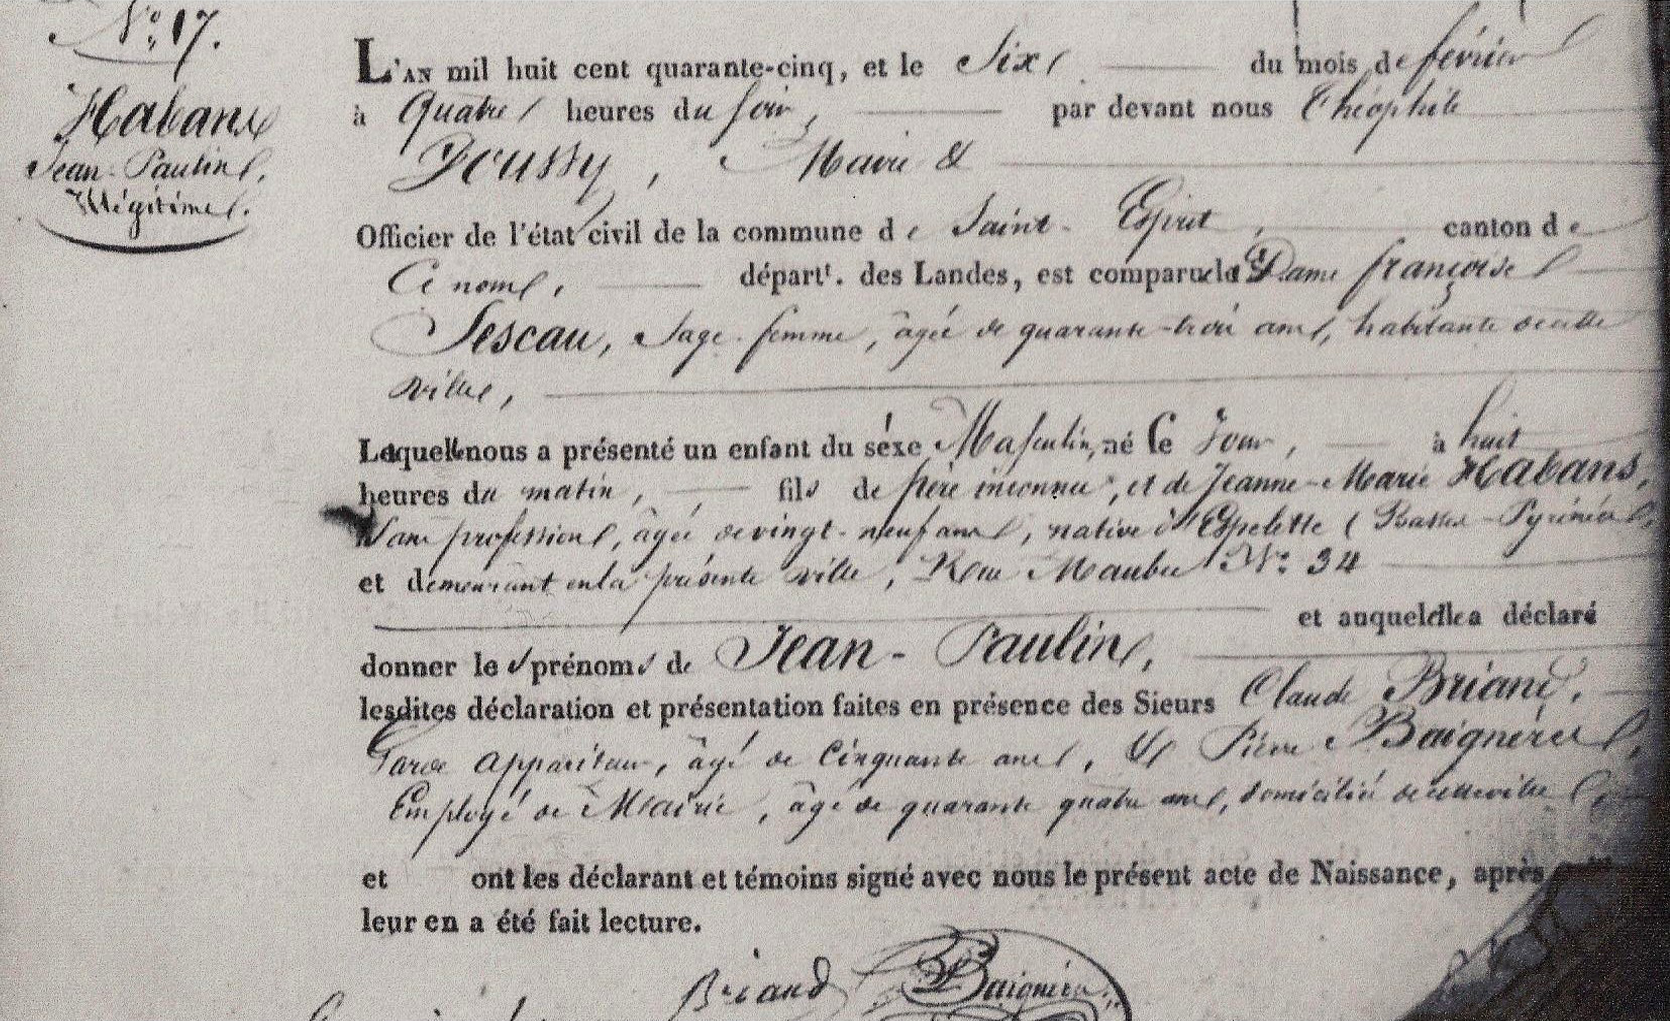 N.º 17.
Habans
Jean-Paulin,
Illégitime.
L'AN mil huit cent quarante-cinq, et le Six du mois de février
à Quatre heures du soir, par devant nous Théophile
Poussy, Maire &
Officier de l'état civil de la commune de Saint-Esprit, canton de
Ce nom, départ.t des Landes, est comparue la Dame françoise
Sescau, Sage-femme, âgée de quarante-trois ans, habitante de cette
ville,
Laquelle nous a présenté un enfant du sexe Masculin, né Ce Jour, à huit
heures du matin, fils de père inconnu, et de Jeanne-Marie Habans,
Sans profession, âgée de vingt-neuf ans, native d'Espelette (Basses-Pyrénées,
et demeurant en la présente ville, Rue Maubec N.º 34
et auquel elle a déclaré
donner les prénoms de Jean-Paulin,
lesdites déclaration et présentation faites en présence des Sieurs Claude Briand,
Garde appariteur, âgé de Cinquante ans, & Pierre Baignères,
Employé de Mairie, âgé de quarante quatre ans, domiciliés de cette ville
et ont les déclarant et témoins signé avec nous le présent acte de Naissance, après
leur en a été fait lecture.
Briand Baignères